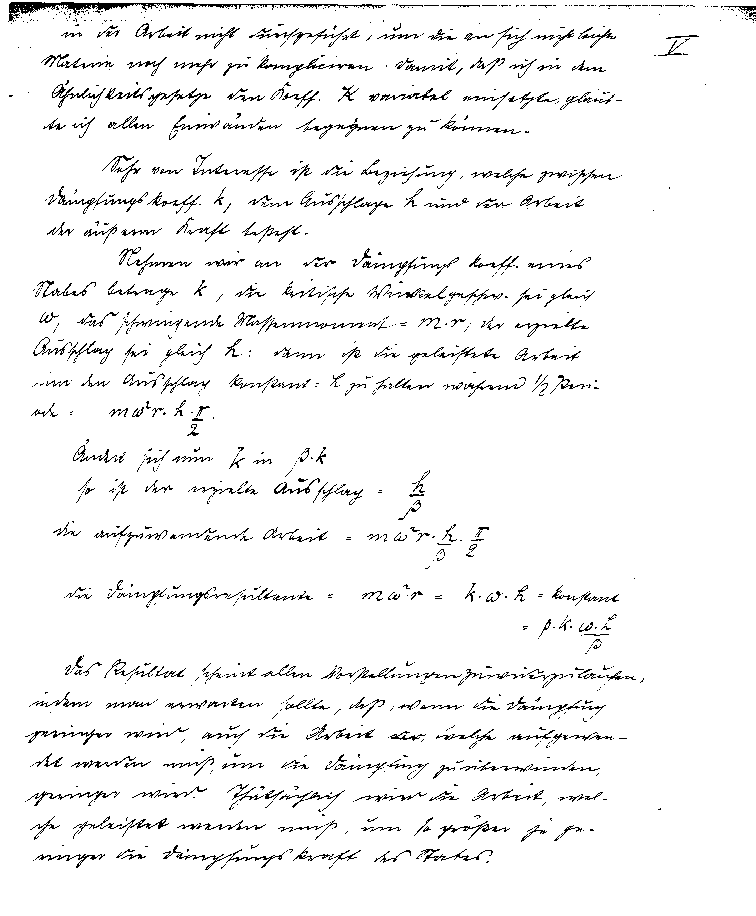 V
in der Arbeit nicht durchgeführt, um die an sich nicht leichte
Materie noch mehr zu komplicieren. Damit, daß ich in dem
Ähnlichkeitsgesetze den Koeff. K variabel einsetzte, glaub-
te ich allen Einwänden begegnen zu können.
Sehr von Interesse ist die Beziehung, welche zwischen
Dämpfungskoeff. k, dem Ausschlage h und der Arbeit
der äußeren Kraft besteht.
Nehmen wir an der Dämpfungskoeff. eines
Stabes betrage k, die kritische Winkelgeschw. sei gleich
ω, das schwingende Massenmoment = m·r, der erzielte
Ausschlag sei gleich h: dann ist die geleistete Arbeit
um den Ausschlag konstant = h zu halten während 1/2 Peri-
ode = mω²r·h·π/2.
Ändert sich nun k in β·k
so ist der erzielte Ausschlag = h/β
die aufzuwendende Arbeit = mω²r·h/β·π/2
die Dämpfungsresultante = mω²r = k·ω·h = konstant
= β·k·ω·h/β
Das Resultat scheint allen Vorstellungen zuwiderzulaufen,
indem man erwarten sollte, daß, wenn die Dämpfung
geringer wird, auch die Arbeit, welche aufgewen-
det werden muß, um die Dämpfung zu überwinden,
geringer wird. Thatsächlich wird die Arbeit, wel-
che geleistet werden muß, um so größer je ge-
ringer die Dämpfungskraft des Stabes.